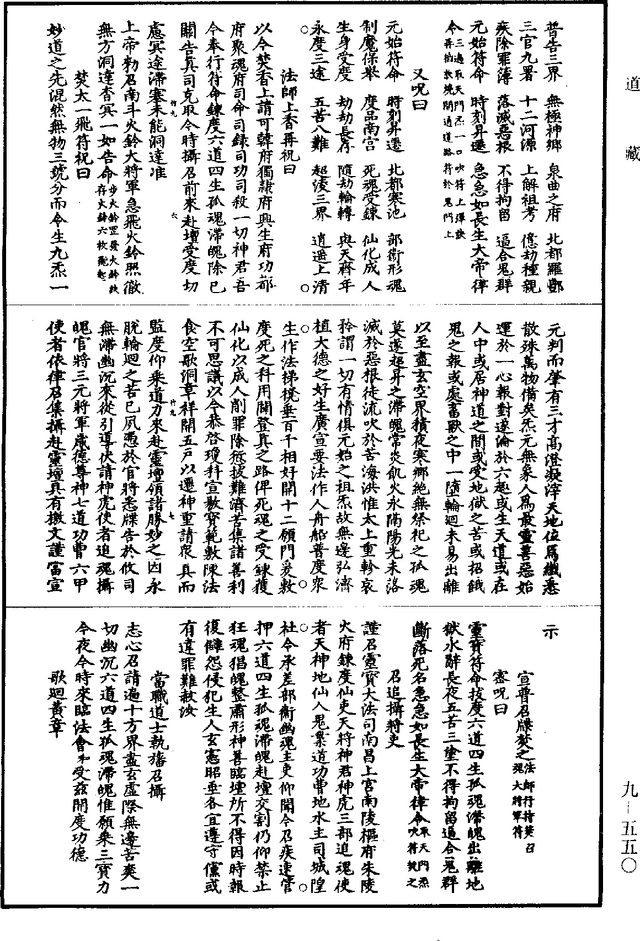 道藏
普告三界　無極神鄉　泉曲之府　北都羅酆
三官九署　十二河源　上解祖考　億劫種親
疾除罪薄　落滅惡根　不得拘留　逼合鬼群
元始符命　時刻昇遷　急急如長生大帝律
令三遍取天門炁一口吹符上彈訣
又呪曰
元始符命　時刻昇遷　北都寒池　部衛形魂
制魔保舉　度品南宮　死魂受鍊　仙化成人
生身受度　劫劫長存　隨劫輪轉　與天齊年
永度三途　五苦八難　超淩三界　逍遙上清
法師上香再祝曰
以今焚香上請可韓府獨隸府興生府功都
府聚魂府司命司錄司功司殺一切神君吾
今奉行符命鍊度六道四生孤魂滯魄除已
關告真司克取今時攝召前來赴壇受度切
慮冥途滯塞未能洞達准
上帝勅召南斗火鈴大將軍急飛火鈴照徹
無方洞達杳冥一如告命
焚太一飛符祝曰
妙道之先混然無物三號分而令生九炁一
元判而肇有三才高澄凝滓天地位焉纖悉
散殊萬物備矣炁元無象人為最靈善惡始
運於一心報對遂淪於六趣或生天道或在
人中或居神道之間或受地獄之苦或招餓
鬼之報或處畜獸之中一墮輪迴未易出離
以至盡玄空界積夜寒鄉絕無祭祀之孤魂
莫遂超昇之滯魄當炎飢火永隔陽光未落
滅於惡根徒流吹於苦海洪惟太上重軫哀
矜謂一切有情俱元始之祖炁故無邊弘濟
植大德之好生廣宣要法作人舟船普度眾
生作法梯橈垂百千相好開十二願門爰敷
度死之科用闢登真之路俾死魂之受鍊獲
仙化以成人削罪除愆拔難濟苦集諸善利
不可思議以今恭啟瓊科宣敷寶範敷陳法
食空歌洞章祥開五戶以遷神重請眾真而
監度仰乘道力來赴靈壇領諸勝妙之因永
脫輪迴之苦已夙憑於官將悉牒告於攸司
無滯幽沉來從引導伏請神虎使者追魂攝
魄官將三元將軍威德尊神七道功曹六甲
使者依律召集攝赴靈壇具有檄文謹當宣
示
宣普召牒焚之
密呪曰
靈寶符命拔度六道四生孤魂滯魄出離地
獄水辭長夜五苦三塗不得拘留逼合鬼群
斷落死名急急如長生大帝律令取天門炁吹符焚之
召追攝將吏
謹召靈寶大法司南昌上宮南陵樞府朱陵
火府鍊度仙吏天將神君神虎三部追魂使
者天神地仙人鬼業道功曹地水主司城隍
社令承差部衛幽魂主吏仰聞今召疾速管
押六道四生孤魂滯魄赴壇交割仍仰禁止
狂魂猖魄整肅形神善臨壇所不得因時報
復讎怨侵犯生人玄憲昭垂各宜遵守儻或
有違罪難赦汝
當職道士執旛召攝
志心召請遍十方界盡玄虛際無邊苦爽一
切幽沉六道四生孤魂滯魄惟願乘三寶力
今夜今時來臨法會來受茲開度功德
歌迴黃章
九—五五〇